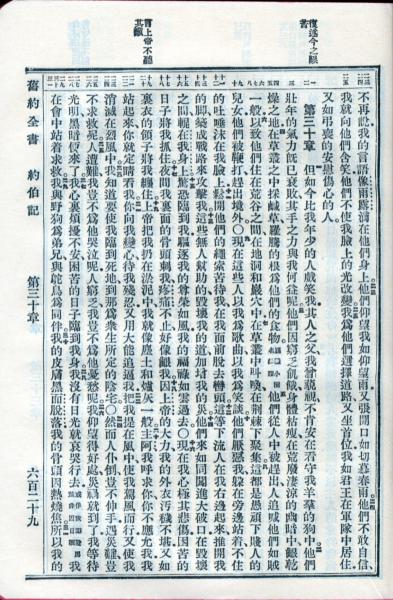 復述今之艱苦
言上帝不聽其籲
不再說我的言語像雨露滴在他們身上他們仰望我如仰望雨又張開口如切慕春雨他們不敢自信
我就向他們含笑他們不使我臉上的光改變我爲他們選擇道路又坐首位我如君王在軍隊中居住
又如弔喪的安慰傷心的人
第三十章 但如今比我年少的人戲笑我其人之父我曾藐視不肯安在看守我羊羣的狗中他們
壯年的氣力旣已衰敗其手之力與我何益呢他們因窮乏飢餓身體枯瘦在荒廢淒涼的幽暗中齦乾
燥之地在草叢之中採鹹草羅騰的根爲他們的食物 他們從人中被趕出人追喊他們如賊
一般以致他們住在荒谷之間在地洞和巖穴中在草叢中叫喚在荆棘下聚集這都是愚頑下賤人的
兒女他們被鞭打趕出境外○現在這些人以我爲歌曲以我爲笑談他們厭惡我躲在旁邊站着不住
的吐唾沫在我臉上鬆開他們的繩索苦待我在我面前脫去轡頭這等下流人在我右邊起來推開我
的脚築成戰路來攻擊我這些無人幫助的毀壞我的道加增我的災他們來如同闖進大破口在毀壞
之間輥在我身上驚恐臨到我驅逐我的尊榮如風我的福祿如雲過去○現在我心極其悲傷困苦的
日子將我抓住夜間我裏面的骨頭刺我疼痛不止好像齦我因上帝的大力我的外衣汚穢不堪又如
裏衣的領子將我纏住上帝把我扔在淤泥中我就像塵土和爐灰一般主阿我呼求你你不應允我我
站起來你就定睛看我你向我變心待我殘忍又用大能追逼我把我提在風中使我駕風而行又使我
消滅在烈風中我知道要使我臨到死地到那爲衆生所定的陰宅○然而人仆倒豈不伸手遇災難豈
不求救呢人遭難我豈不爲他哭泣呢人窮乏我豈不爲他憂愁呢我仰望得好處災禍就到了我等待
光明黑暗便來了我心裏煩擾不安困苦的日子臨到我身我沒有日光就哀哭行去 我
在會中站着求救我與野狗爲弟兄與鴕鳥爲同伴我的皮膚黑而脫落我的骨頭因熱燒焦所以我的
舊約全書 約伯記 第三十章 六百二十九